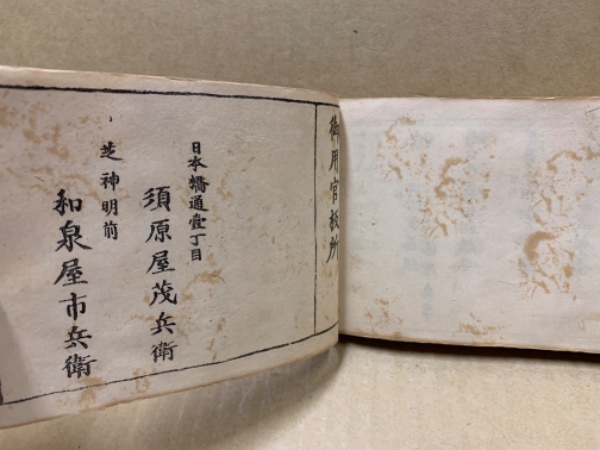 御用官板所
日本橋通壹丁目
須原屋茂兵衛
芝神明前
和泉屋市兵衛